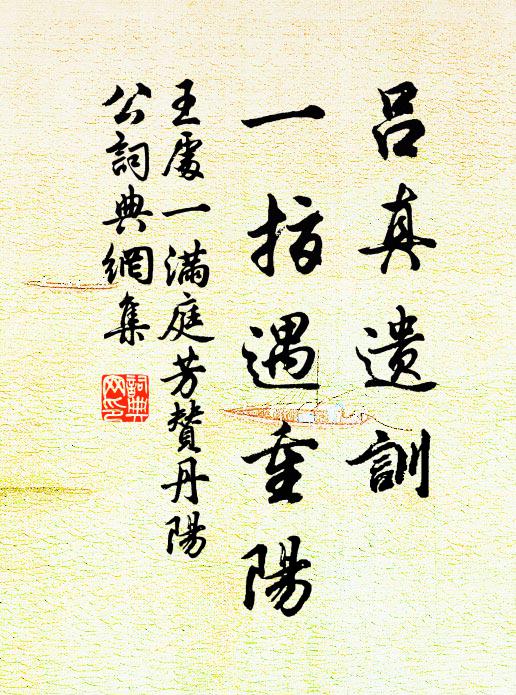 呂真遺訓
一指遇重陽
王處一滿庭芳贊丹陽
公詞典網集
詞典
网印